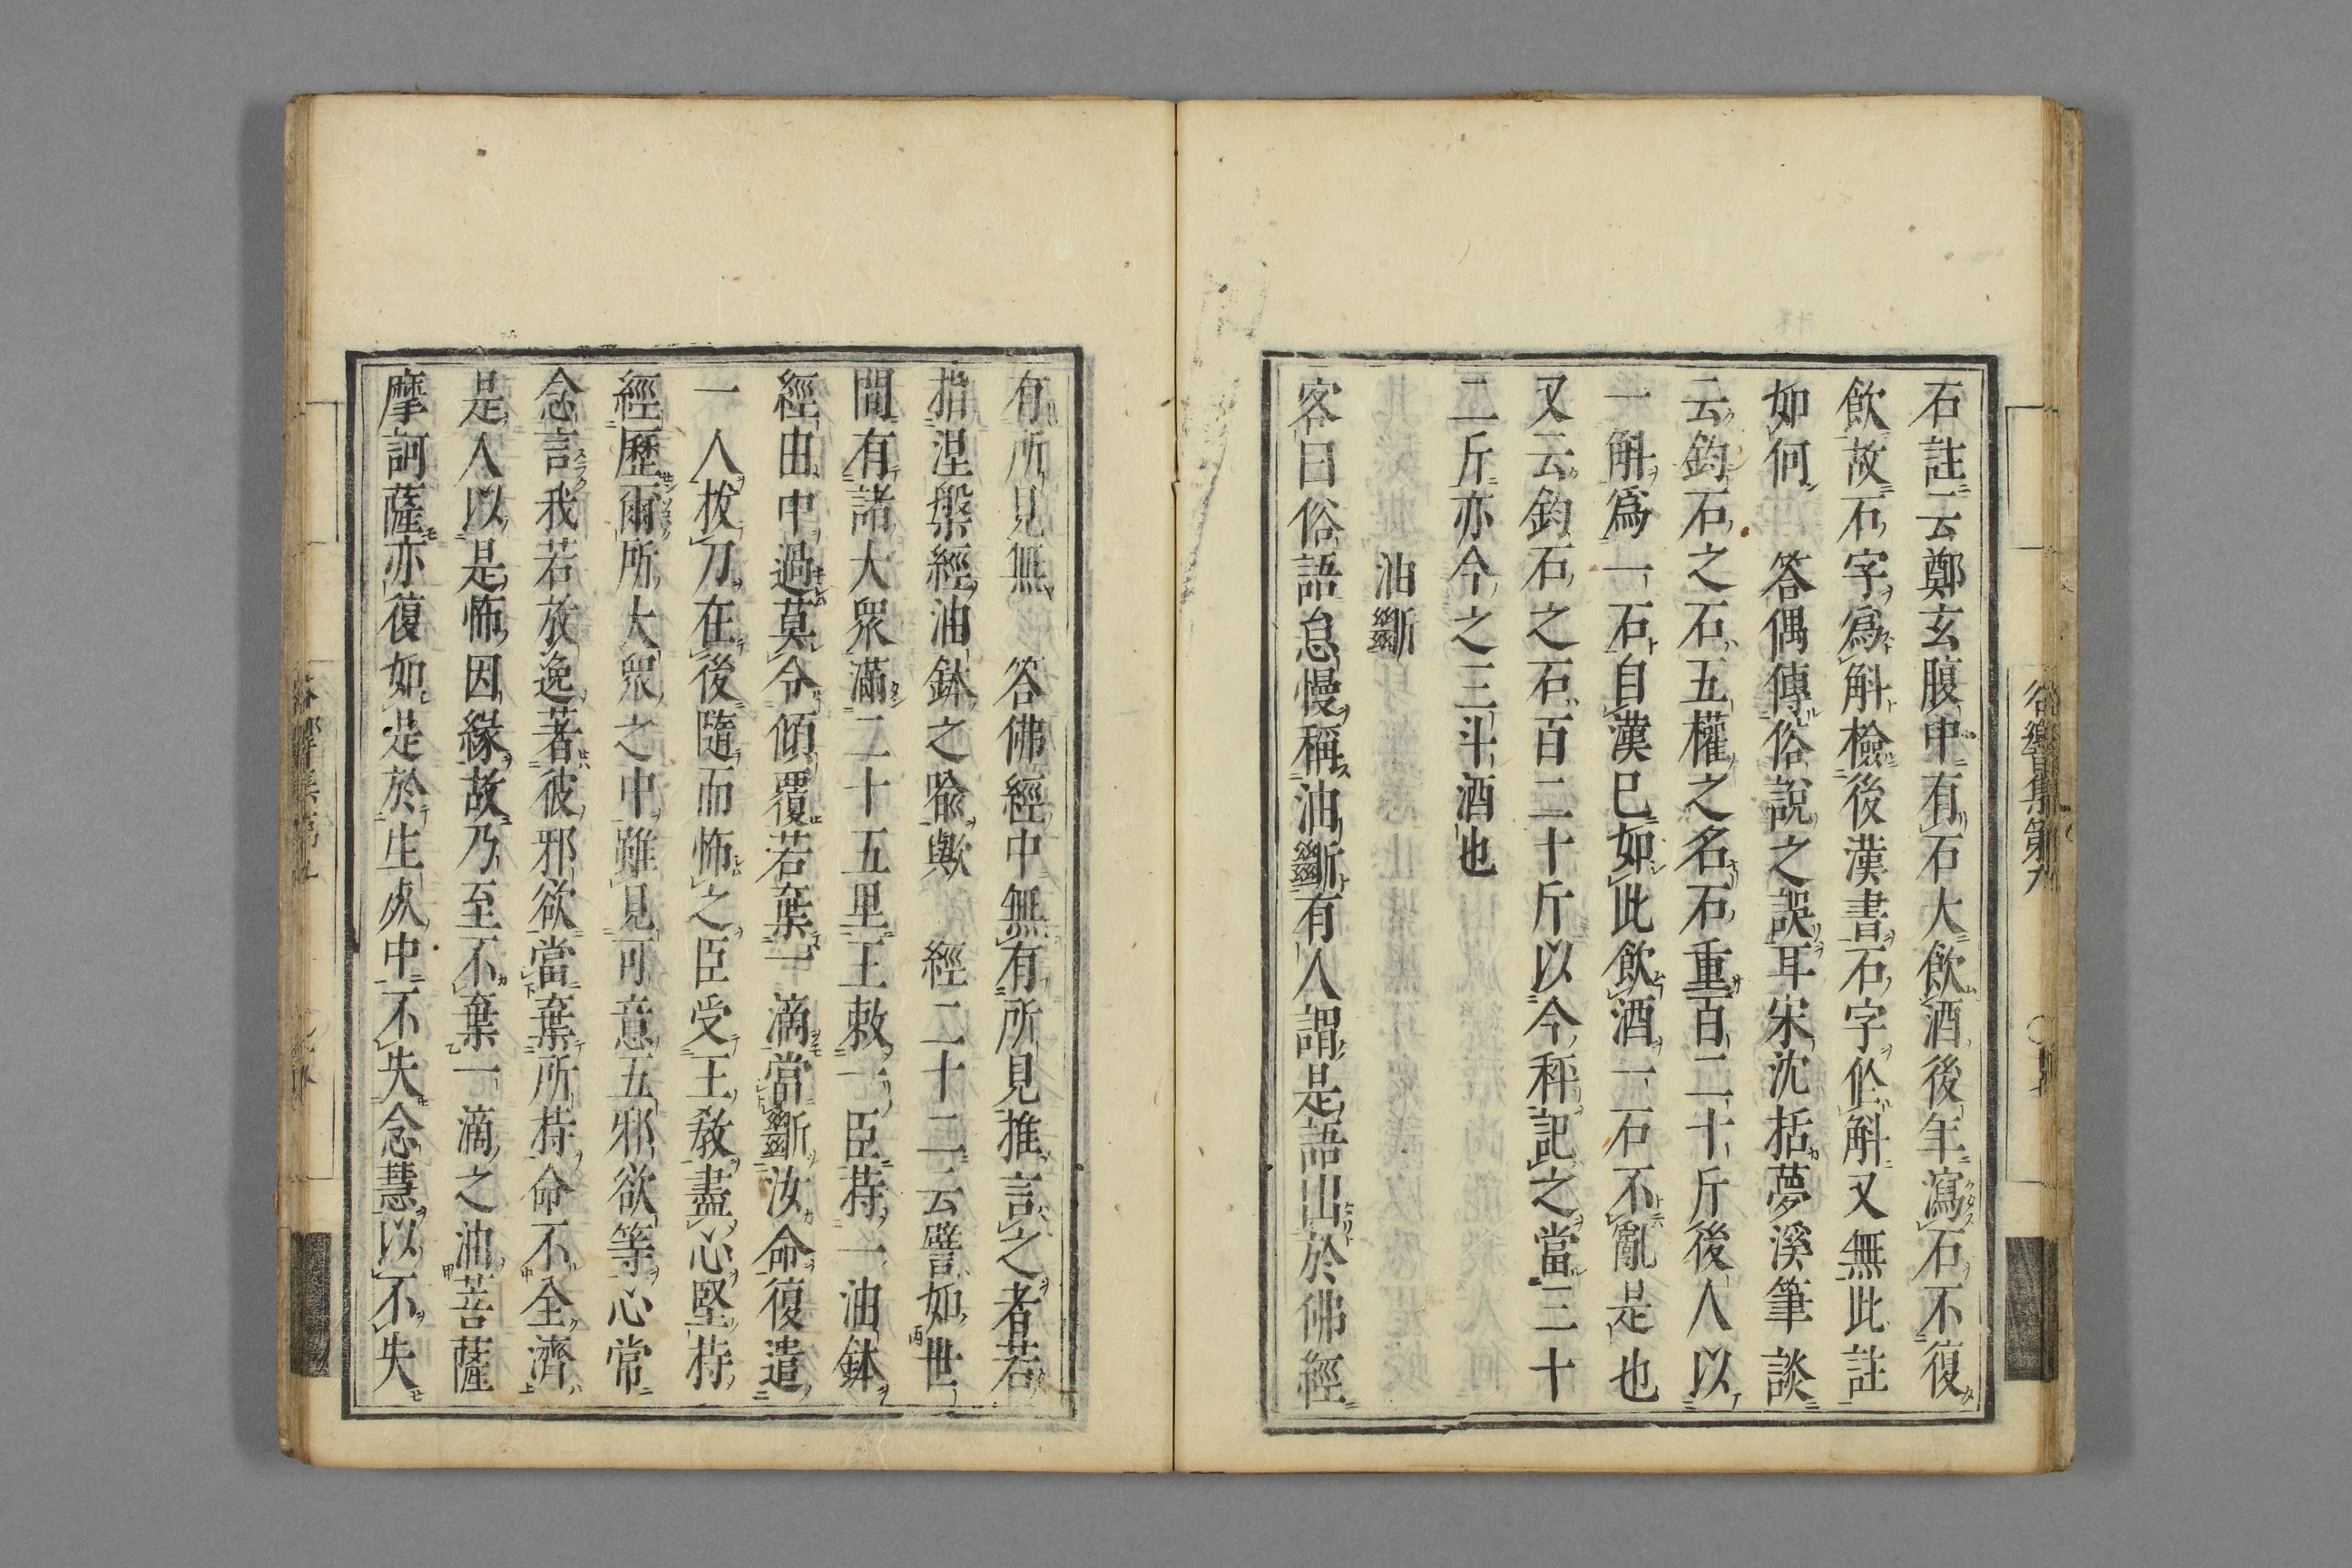 石註云鄭玄腹中有石大飲酒後年瀉石不復
飲故石字爲斛檢後漢書石字作斛又無此註
如何 答偶傳俗說之誤耳宋沈括夢溪筆談
云鈞石之石五權之名石重百二十斤後人以
一斛爲一石自漢已如此飲酒一石不亂是也
又云鈞石之石百二十斤以今秤記之當三十
二斤亦今之三斗酒也
油斷
客曰俗語怠慢稱油斷有人謂是語出於佛經
有所見無 答佛經中無有所見推言之者若
指涅槃經油鉢之喩歟 經二十二云譬如世
間有諸大衆滿二十五里王敕一臣持一油鉢
經由中過莫令傾覆若棄一滴當斷汝命復遣
一人拔刀在後隨而怖之臣受王敎盡心堅持
經歷爾所大衆之中雖見可意五邪欲等心常
念言我若放逸著彼邪欲當棄所持命不全濟
是人以是怖因緣故乃至不棄一滴之油菩薩
摩訶薩亦復如是於生死中不失念慧以不失
谷響集第九